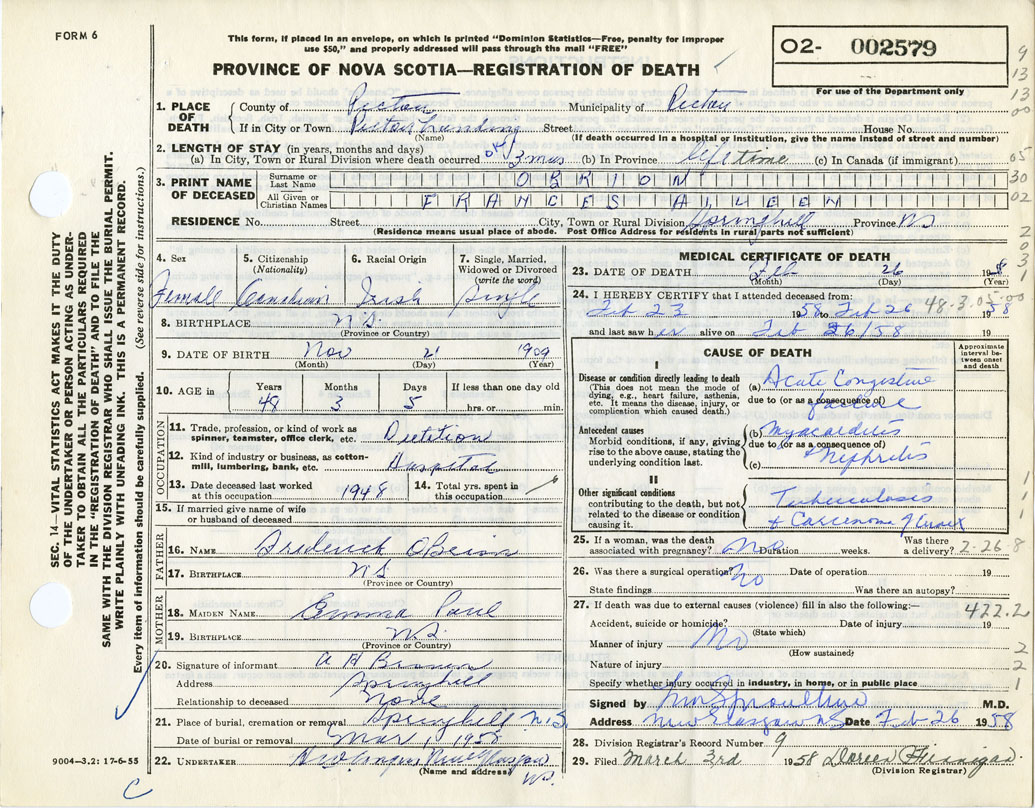 FORM 6
This form, if placed in an envelope, on which is printed "Dominion Statistics—Free, penalty for improper
use $50," and properly addressed will pass through the mail "FREE"
PROVINCE OF NOVA SCOTIA—REGISTRATION OF DEATH
02- 002579
For use of the Department only
SEC. 14—VITAL STATISTICS ACT MAKES IT THE DUTY
OF THE UNDERTAKER OR PERSON ACTING AS UNDER-
TAKER TO OBTAIN ALL THE PARTICULARS REQUIRED
IN THE "REGISTRATION OF DEATH" AND TO FILE THE
SAME WITH THE DIVISION REGISTRAR WHO SHALL ISSUE THE BURIAL PERMIT.
WRITE PLAINLY WITH UNFADING INK. THIS IS A PERMANENT RECORD.
Every item of information should be carefully supplied. (See reverse side for instructions.)
1. PLACE OF DEATH County of Pictou Municipality of Pictou
If in City or Town Pictou Landing Street House No.
(Name) (If death occurred in a hospital or Institution, give the name instead of street and number)
2. LENGTH OF STAY (in years, months and days)
(a) In City, Town or Rural Division where death occurred 3 mos (b) In Province lifetime (c) In Canada (if immigrant)
3. PRINT NAME OF DECEASED Surname or Last Name O'BRION
All Given or Christian Names FRANCES AILEEN
RESIDENCE No. Street City, Town or Rural Division Springhill Province NS
(Residence means usual place of abode. Post Office Address for residents in rural parts not sufficient)
4. Sex 5. Citizenship (Nationality) 6. Racial Origin 7. Single, Married, Widowed or Divorced (write the word)
Female Canadian Irish Single
8. BIRTHPLACE N.S.
(Province or Country)
9. DATE OF BIRTH Nov 21 1909
(Month) (Day) (Year)
10. AGE in Years Months Days If less than one day old
48 3 5 hrs. or min.
OCCUPATION
11. Trade, profession, or kind of work as spinner, teamster, office clerk, etc. Dietition
12. Kind of industry or business, as cotton-mill, lumbering, bank, etc. Hospital
13. Date deceased last worked at this occupation 1948 14. Total yrs. spent in this occupation
15. If married give name of wife or husband of deceased
FATHER
16. NAME Frederick O'Brion
17. BIRTHPLACE NS
(Province or Country)
MOTHER
18. MAIDEN NAME Emma Paul
19. BIRTHPLACE N.S.
(Province or Country)
20. Signature of informant A H Brown
Address Springhill
Relationship to deceased None
21. Place of burial, cremation or removal Springhill N.S.
Date of burial or removal Mar 1, 1958
22. UNDERTAKER New Glasgow
(Name and address) N.S.
9004—3.2: 17-6-55
C
MEDICAL CERTIFICATE OF DEATH
23. DATE OF DEATH Feb 26 1958
(Month) (Day) (Year)
24. I HEREBY CERTIFY that I attended deceased from:
Feb 23 1958 to Feb 26 1958
48-3-05-00
and last saw her alive on Feb 26/58 19
CAUSE OF DEATH
Approximate interval between onset and death
I
Disease or condition directly leading to death
(This does not mean the mode of dying, e.g., heart failure, asthenia, etc. It means the disease, injury, or complication which caused death.)
(a) Acute Congestive
due to (or as a consequence of)
failure
Antecedent causes
Morbid conditions, if any, giving rise to the above cause, stating the underlying condition last.
(b) Myocarditis
due to (or as a consequence of)
(c) + Nephritis
II
Other significant conditions
contributing to the death, but not related to the disease or condition causing it.
Tuberculosis
+ Carcinoma of Cervix
25. If a woman, was the death associated with pregnancy? No Duration weeks. Was there a delivery? 2-26 8
26. Was there a surgical operation? No Date of operation 19
State findings Was there an autopsy?
27. If death was due to external causes (violence) fill in also the following:— 422.2
Accident, suicide or homicide? Date of injury 19
(State which)
Manner of injury No
(How sustained)
Nature of injury
Specify whether injury occurred in industry, in home, or in public place
Signed by M.D.
Address New Glasgow NS Date Feb 26 1958
28. Division Registrar's Record Number 9
29. Filed March 3rd 1958 Doreen Finigan
(Division Registrar)
9
13
13
65
30
02
2
0
3
1
1
1
2
2
1